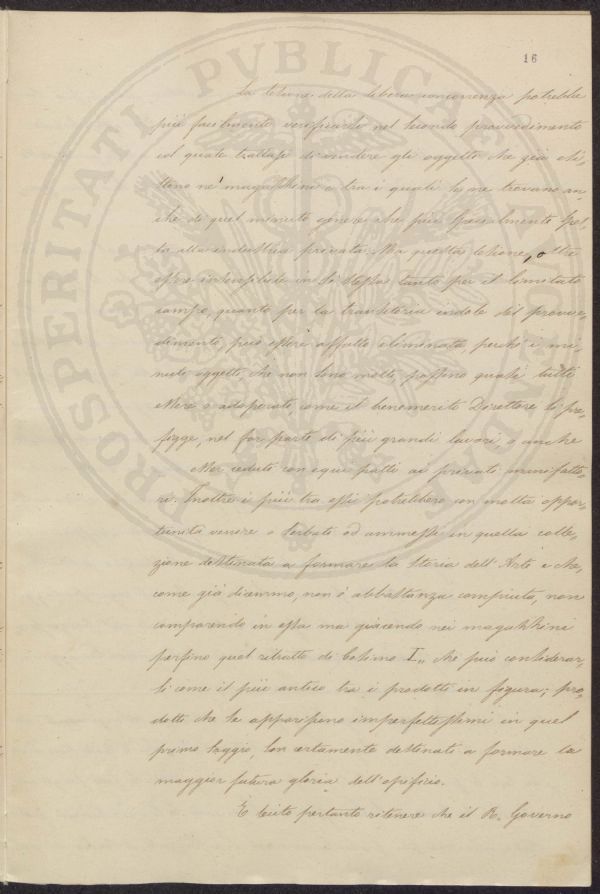 16
La lesione della libera concorrenza potrebbe
più facilmente verificarsi nel secondo provvedimento
col quale trattasi di vendere gli oggetti che già esi-
stono ne' magazzini e tra i quali se ne trovano an-
che di quel minuto genere che più specialmente spet-
ta alla industria privata. Ma questa lesione, oltre
esser insensibile in se stessa tanto per il limitato
campo, quanto per la transitoria indole del provve-
dimento, può essere affatto eliminata, perchè i mi-
nuti oggetti che non sono molti, possono quasi tutti
essere o adoperati, come il benemerito Direttore si pre-
figge, nel far parte di più grandi lavori, o anche
esser ceduti con equi patti ai privati manifatto-
ri. Inoltre i più tra essi potrebbero con molta oppor-
tunità venire o serbati od ammessi in quella colle-
zione destinata a formare la Storia dell'Arte e che,
come già dicemmo, non è abbastanza compiuta, non
comparendo in essa ma giacendo nei magazzini
persino quel ritratto di Cosimo I,, che può considerar-
si come il più antico tra i prodotti in figura; pro-
dotti che se apparissero imperfettissimi in quel
primo saggio, son certamente destinati a formare la
maggior futura gloria dell'opificio.
E lecito pertanto ritenere che il R. Governo
PROSPERITATI PVBLICAE